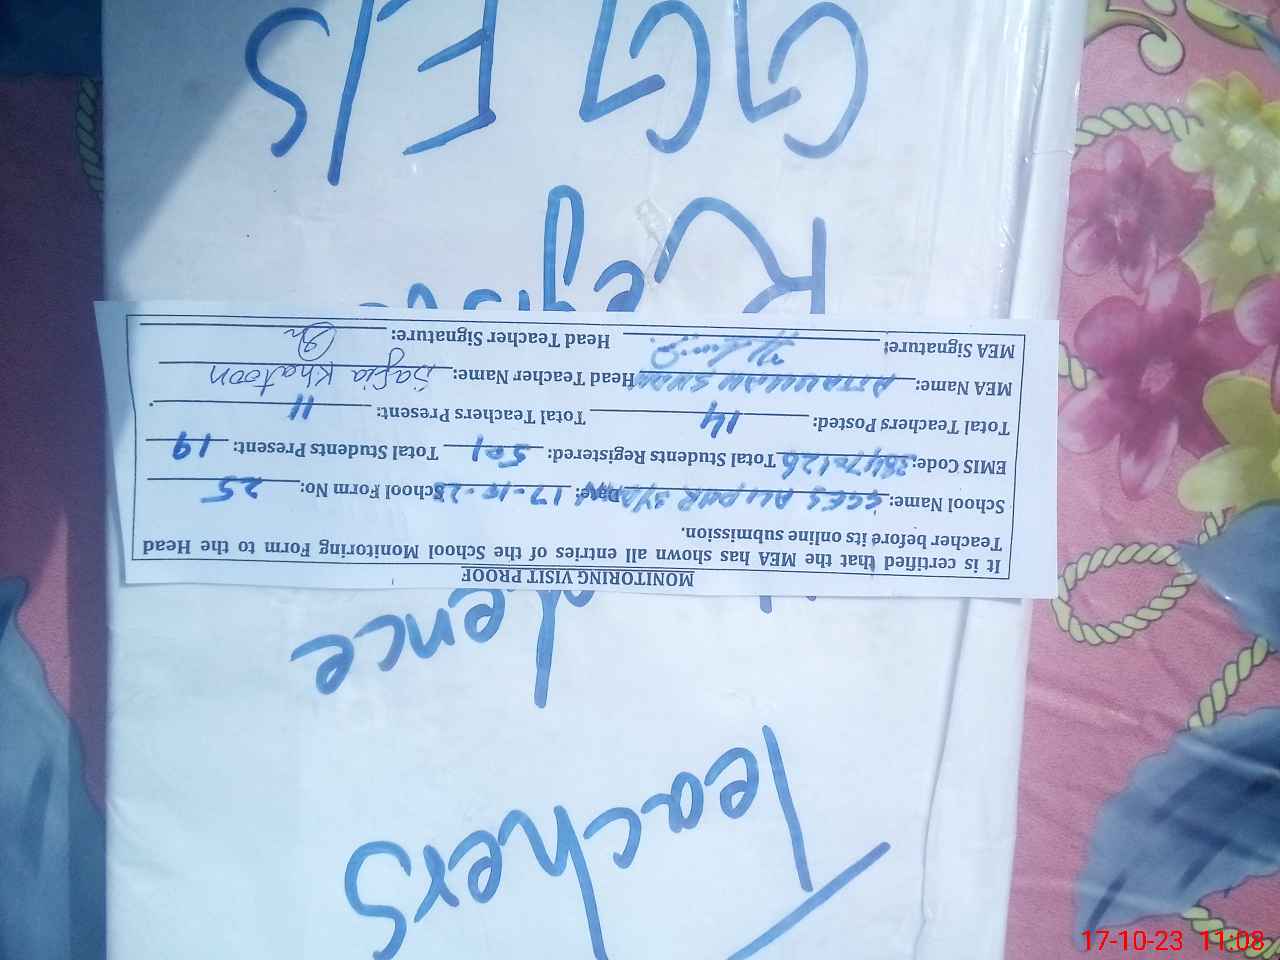 Teachers
Register
GGE/S
MONITORING VISIT PROOF
It is certified that the MEA has shown all entries of the School Monitoring Form to the Head
Teacher before its online submission.
School Name: GGES ALIPUR Date: 17-10-23 School Form No: 25
EMIS Code: Total Students Registered: 501 Total Students Present: 19
Total Teachers Posted: 14 Total Teachers Present: 11
MEA Name: Head Teacher Name: Safia Khatoon
MEA Signature: Head Teacher Signature:
17-10-23 11:08